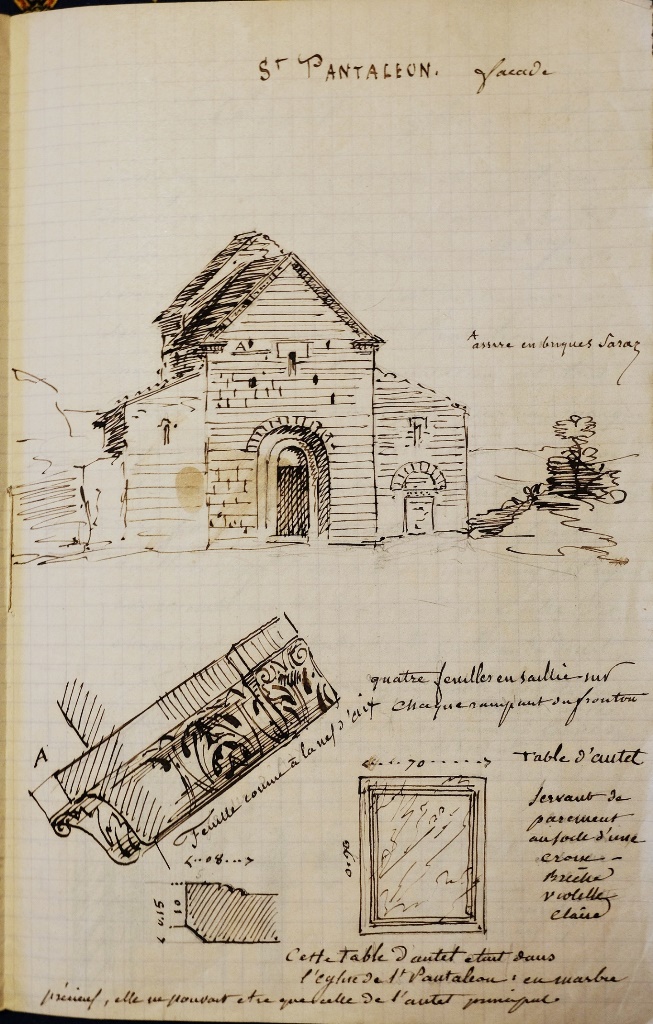 St PANTALEON. façade
A
assise en briques Saraz
quatre feuilles en saillie sur
chaque rampant du fronton
A
Feuille comme à la nef d'aix
70
0.90
Table d'autel
servant de
parement
au socle d'une
croix -
Brèche
violette
claire
08
0.15
10
Cette table d'autel etait dans
l'eglise de St Pantaleon : en marbre
précieux, elle ne pouvait etre que celle de l'autel principal.